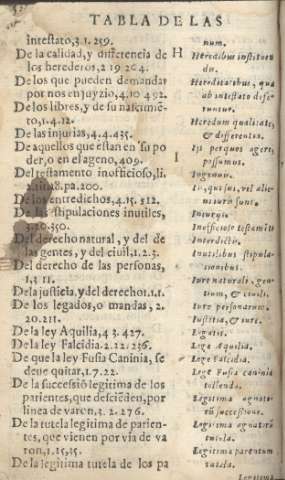 TABLA DE LAS
intestato, 3.1. 259.
De la calidad, y differencia de
los herederos, 2 19 264.
De los que pueden demandar
por nos en juyzio, 4.10 492.
De los libres, y de su nascimiē-
to, 1.4.12.
De las injurias, 4.4.435.
De aquellos que estan en su po
der, o en el ageno, 409.
Del testamento inofficioso, li.
pa.200.
De los entredichos, 4.15. 512.
De las stipulaciones inutiles,
3.20.350.
Del derecho natural, y del de
las gentes, y del ciuil, 1.2.3.
Del derecho de las personas,
1.3 11.
De la justicia, y del derecho 1.1.1.
De los legados, o mandas, 2.
20.211.
De la ley Aquilia, 4 3. 427.
De la ley Falcidia. 2.22. 236.
De que la ley Fusia Caninia, se
deue quitar, 1.7.22.
De la successiō legitima de los
parientes, que descienden, por
linea de varon, 3. 2. 276.
De la tutela legitima de parien-
tes, que vienen por via de va
ron, 1.15,35.
De la legitima tutela de los pa
H
I
num.
Heredibus instituen
dis.
Hereditatibus, qua
ab intestato defe-
runtur.
Heredum qualitate,
& differentes.
Iis perquos agere,
possumus.
Ingenuis.
Iniuriis.
Inofficioso testamēti
Interdictis.
Inutilibus stipula-
tionibus.
Iure naturali, gen-
tium, & ciuili.
Iure personarum.
Iustitia, & iure.
Legatis.
Lege Aquilia.
Lege Falcidia.
Lege Fusia caninia
tollenda.
Legitima agnato-
rū successione.
Legitima agnatorū
tutela.
Legitima parentum
tutela.
Legitima